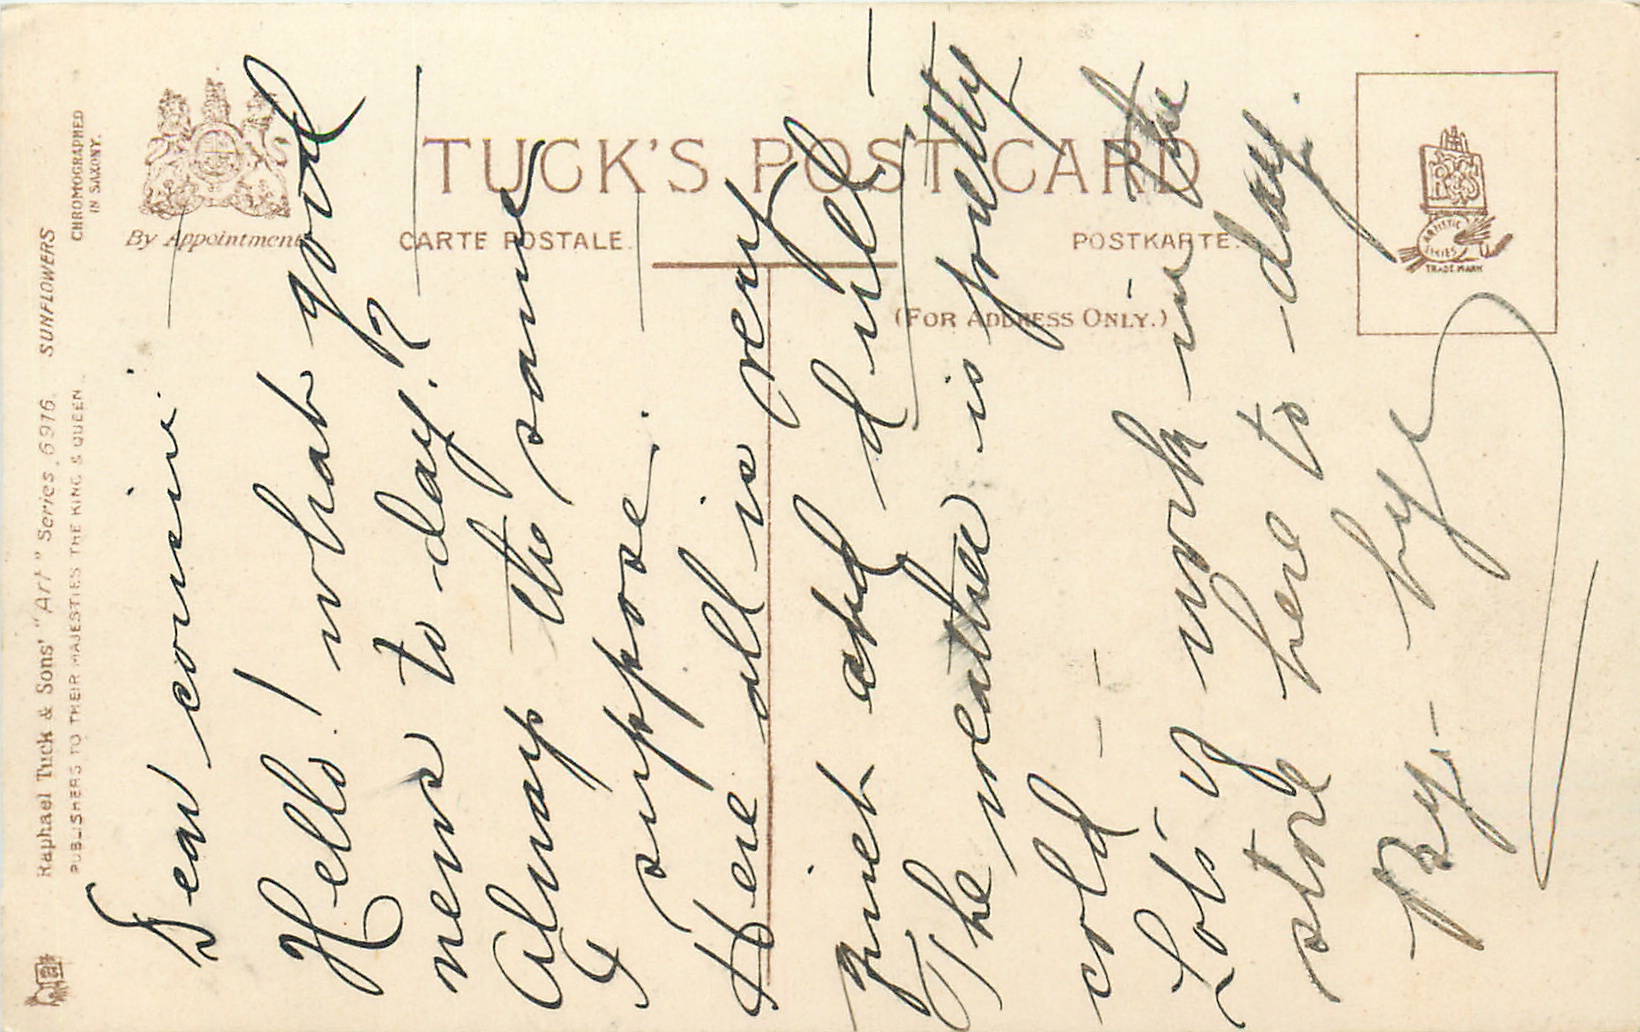 Raphael Tuck & Sons' "Art" Series 6916. SUNFLOWERS
PUBLISHERS TO THEIR MAJESTIES THE KING & QUEEN
CHROMOGRAPHED
IN SAXONY.
By Appointment
TUCK'S POST CARD
CARTE POSTALE.
POSTKARTE.
(FOR ADDRESS ONLY.)
ARTISTIC
SERIES
TRADE MARK
Dear
Hello! what good
news to-day.?
Always the same
I suppose.
Here all is very
quiet and dull—
The weather is pretty
cold — —
Lots of work in the
store here to-day.
By-bye